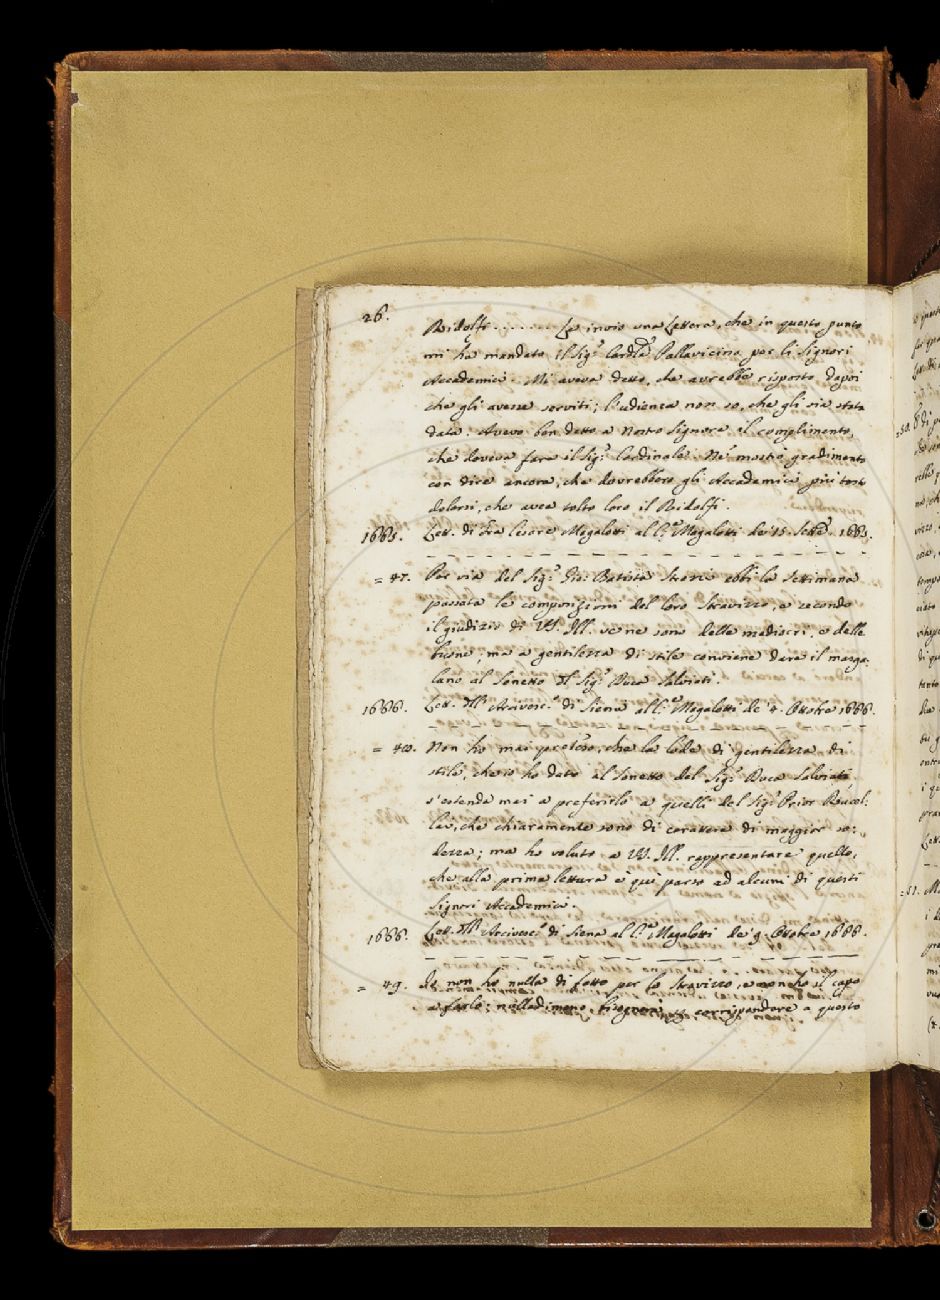 26.
Ridolfi......... Le invio una Lettera, che in questo punto
mi ha mandato il Sig.r Card.le Pallavicino per li Signori
Accademici. Mi aveva detto, che avrebbe risposto dopoi
che gli avesse serviti; l'udienza non so, che gli sia stata
data. Avevo ben detto a Nostro Signore il complimento,
che doveva fare il Sig.r Cardinale. Ne mostrò gradimento
con dire ancora, che dovrebbero gli Accademici più tosto
dolersi, che avea tolto loro il Ridolfi.
1665. Lett. di Cesare Magalotti al C.e Magalotti de' 15. Sett.e 1665.
= 47. Per via del Sig.r Gio: Batista ebbi la Settimana
passata le composizioni del loro Stravizzo, e secondo
il giudizio di VS. Ill. ve ne sono delle mediocri, e delle
buone; ma a gentilezza di stile conviene dare il marga-
lano al Sonetto d.l Sig.r Duca Salviati.
1666. Lett. d.ll' Arcivesc.o di Siena al C.e Magalotti de' 4. Ottobre 1666.
= 48. Non ho mai preteso, che la lode di gentilezza di
stile, che io ho dato al Sonetto del Sig.r Duca Salviati,
s'estenda mai a preferirlo a quelli del Sig.r Prior Rucel-
lai, che chiaramente sono di carattere di maggior so-
dezza; ma ho voluto a VS. Ill. rappresentare quello,
che alla prima lettura è qui parso ad alcuni di questi
Signori Accademici.
1666. Lett. d.ll' Arcivesc.o di Siena al C.e Magalotti de' 9. Ottobre 1666.
= 49. Io non ho nulla di fatto per lo Stravizzo, e non ho il capo
a farlo; nulladimeno bisognerà corrispondere a questo